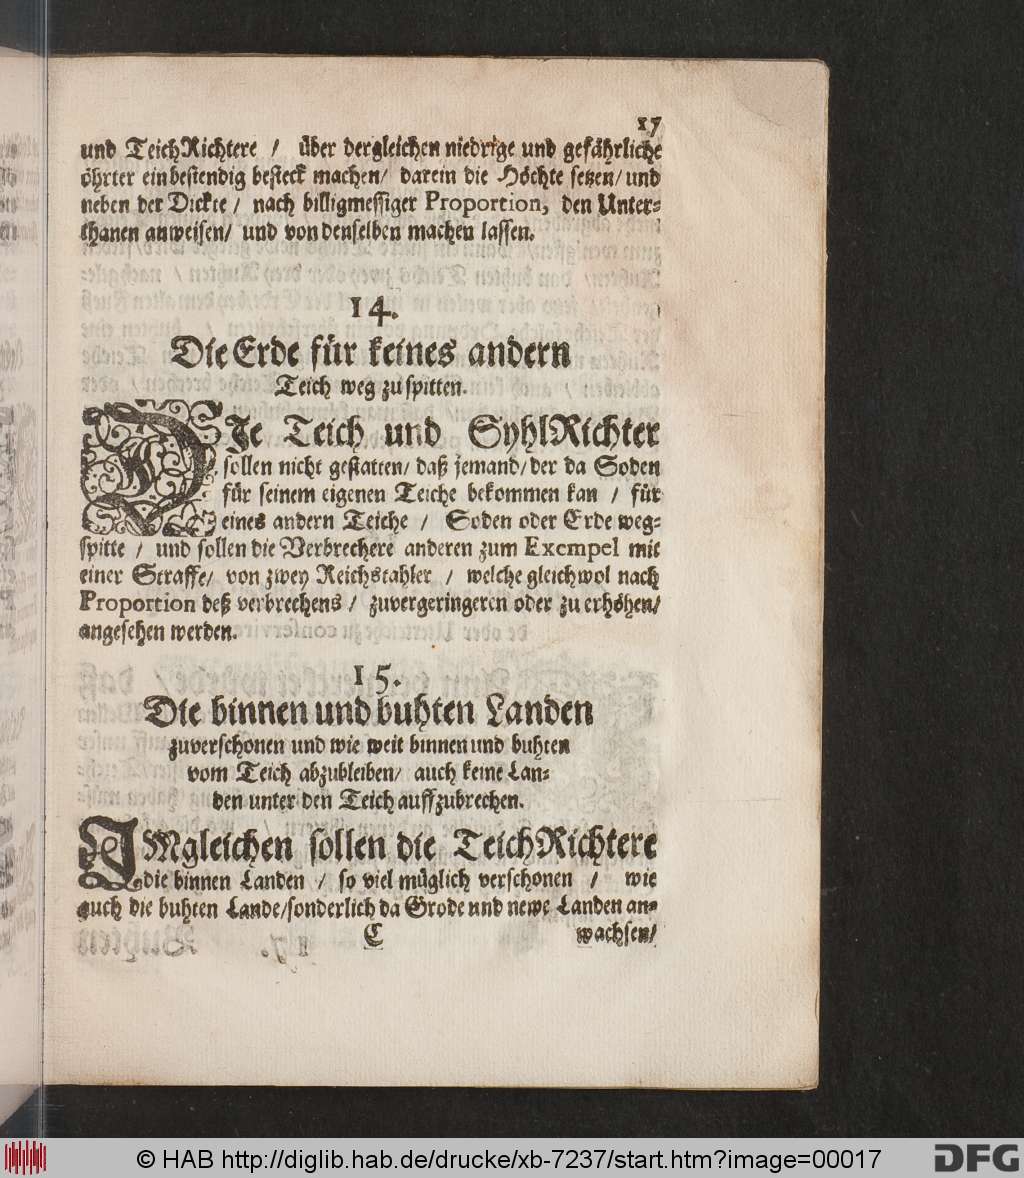 17
und TeichRichtere / über dergleichen niedrige und gefährliche
öhrter einbestendig besteck machen/ darein die Höchte setzen/ und
neben der Dickte / nach billigmessiger Proportion, den Unter-
thanen anweisen/ und von denselben machen lassen.
14.
Die Erde für keines andern
Teich weg zu spitten.
DIe Teich und SyhlRichter
sollen nicht gestatten/ daß jemand/ der da Soden
für seinem eigenen Teiche bekommen kan / für
eines andern Teiche / Soden oder Erde weg-
spitte / und sollen die Verbrechere anderen zum Exempel mit
einer Straffe/ von zwey Reichstahler / welche gleichwol nach
Proportion deß verbrechens / zuvergeringeren oder zu erhöhen/
angesehen werden.
15.
Die binnen und buhten Landen
zuverschonen und wie weit binnen und buhten
vom Teich abzubleiben/ auch keine Lan-
den unter den Teich auffzubrechen.
IMgleichen sollen die TeichRichtere
die binnen Landen / so viel müglich verschonen / wie
auch die buhten Lande/ sonderlich da Grode und newe Landen an-
C wachsen/
© HAB http://diglib.hab.de/drucke/xb-7237/start.htm?image=00017
DFG